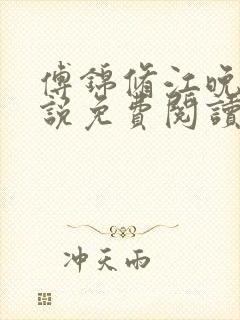 傅锦脩江晚
説免費閱讀
冲天雨